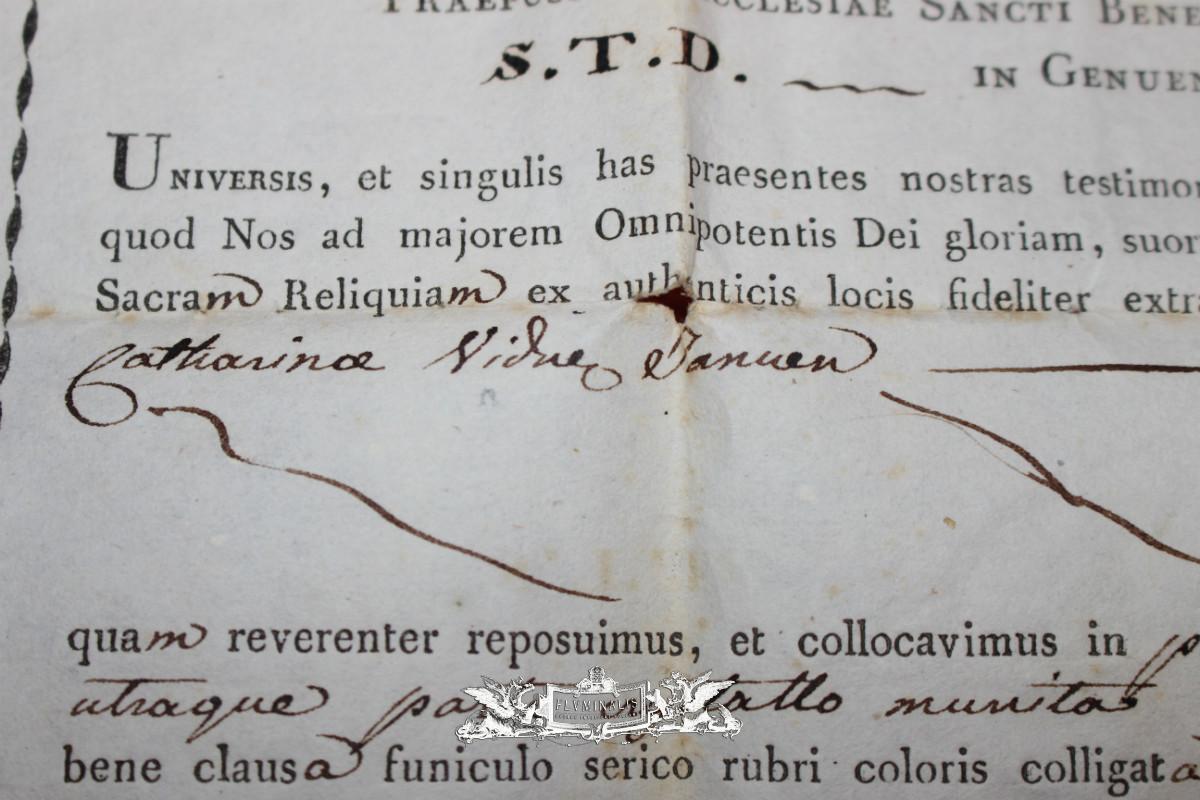 PRAEPOS ECCLESIAE SANCTI BENE
S.T.D. IN GENUEN
UNIVERSIS, et singulis has praesentes nostras testimon
quod Nos ad majorem Omnipotentis Dei gloriam, suor
Sacram Reliquiam ex authenticis locis fideliter extra
Catharinæ Viduæ Januen
quam reverenter reposuimus, et collocavimus in
utraque munita
FLVMINALIS
bene clausa funiculo serico rubri coloris colligata